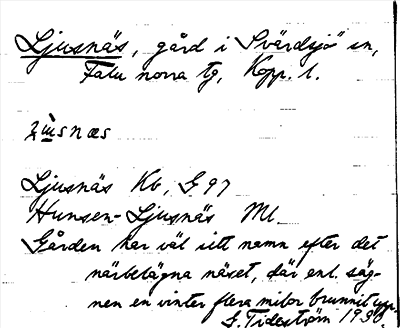 Ljusnäs, gård i Svärdsjö sn,
Falu norra tg, Kopp. l.
Ljusnäs Kb, G 97
Hunsen-Ljusnäs Ml
Gården har väl sitt namn efter det
närbelägna näset, där enl. säg-
nen en vinter flera milor brunnit upp.
G. Tideström 1930.